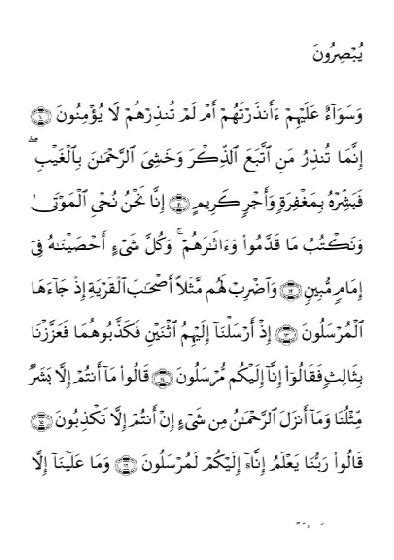 يُبْصِرُونَ
وَسَوَآءٌ عَلَيْهِمْ ءَأَنذَرْتَهُمْ أَمْ لَمْ تُنذِرْهُمْ لَا يُؤْمِنُونَ ۝١٠
إِنَّمَا تُنذِرُ مَنِ ٱتَّبَعَ ٱلذِّكْرَ وَخَشِىَ ٱلرَّحْمَـٰنَ بِٱلْغَيْبِ ۖ
فَبَشِّرْهُ بِمَغْفِرَةٍ وَأَجْرٍ كَرِيمٍ ۝١١ إِنَّا نَحْنُ نُحْىِ ٱلْمَوْتَىٰ
وَنَكْتُبُ مَا قَدَّمُوا۟ وَءَاثَـٰرَهُمْ ۚ وَكُلَّ شَىْءٍ أَحْصَيْنَـٰهُ فِىٓ
إِمَامٍ مُّبِينٍ ۝١٢ وَٱضْرِبْ لَهُم مَّثَلًا أَصْحَـٰبَ ٱلْقَرْيَةِ إِذْ جَآءَهَا
ٱلْمُرْسَلُونَ ۝١٣ إِذْ أَرْسَلْنَآ إِلَيْهِمُ ٱثْنَيْنِ فَكَذَّبُوهُمَا فَعَزَّزْنَا
بِثَالِثٍ فَقَالُوٓا۟ إِنَّآ إِلَيْكُم مُّرْسَلُونَ ۝١٤ قَالُوا۟ مَآ أَنتُمْ إِلَّا بَشَرٌ
مِّثْلُنَا وَمَآ أَنزَلَ ٱلرَّحْمَـٰنُ مِن شَىْءٍ إِنْ أَنتُمْ إِلَّا تَكْذِبُونَ ۝١٥
قَالُوا۟ رَبُّنَا يَعْلَمُ إِنَّآ إِلَيْكُمْ لَمُرْسَلُونَ ۝١٦ وَمَا عَلَيْنَآ إِلَّا